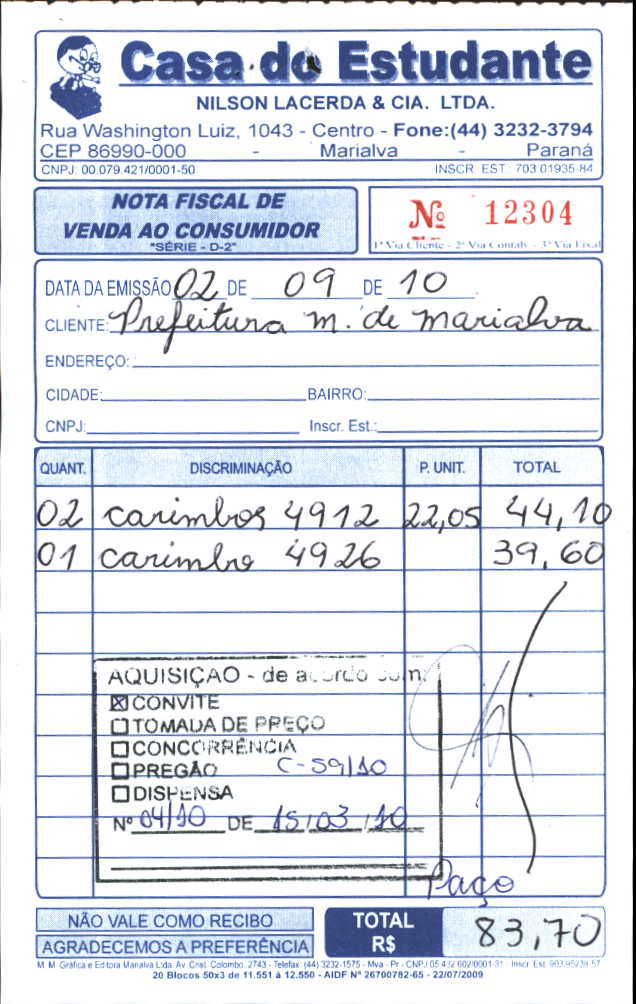 Casa do Estudante
NILSON LACERDA & CIA. LTDA.
Rua Washington Luiz, 1043 - Centro - Fone:(44) 3232-3794
CEP 86990-000 - Marialva - Paraná
CNPJ: 00.079.421/0001-50 INSCR. EST. 703.01935-84
NOTA FISCAL DE
VENDA AO CONSUMIDOR
"SÉRIE - D-2"
Nº 12304
1ª Via Cliente - 2ª Via Contab. - 3ª Via Fixa
DATA DA EMISSÃO 02 DE 09 DE 10
CLIENTE: Prefeitura M. de Marialva
ENDEREÇO:
CIDADE: BAIRRO:
CNPJ: Inscr. Est.:
QUANT. DISCRIMINAÇÃO P. UNIT. TOTAL
02 carimbos 4912 22,05 44,10
01 carimbo 4926 39,60
AQUISIÇÃO - de acordo com:
☒ CONVITE
☐ TOMADA DE PREÇO
☐ CONCORRÊNCIA
☐ PREGÃO C-59/10
☐ DISPENSA
Nº 04/10 DE 15/03/10
Pago
NÃO VALE COMO RECIBO
AGRADECEMOS A PREFERÊNCIA
TOTAL R$ 83,70
M. M. Gráfica e Editora Marialva Ltda. Av. Crist. Colombo, 2743 - Telefax: (44) 3232-1575 - Mva - Pr - CNPJ 05.432.602/0001-31 Inscr. Est.
20 Blocos 50x3 de 11.551 à 12.550 - AIDF Nº 26700782-65 - 22/07/2009